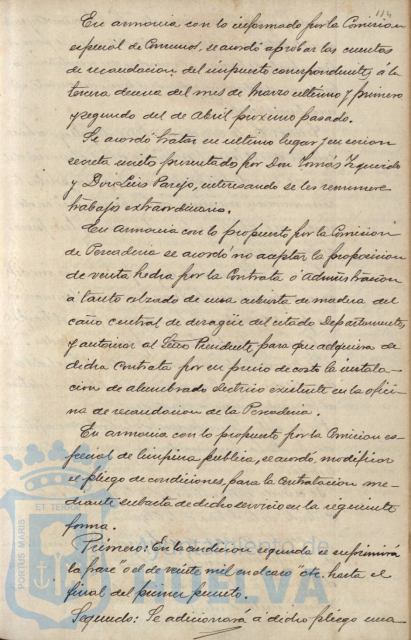 114
En armonia con lo informado por la Comision
especial de Consumos, se acordó aprobar las cuentas
de recaudacion del impuesto correspondientes á la
tercera decena del mes de Marzo ultimo y primera
y segunda del de Abril proximo pasado.
Se acordó tratar en ultimo lugar y en sesion
secreta escrito presentado por Don Tomás Izquierdo
y Don Luis Parejo, interesando se les remunere
trabajos extraordinarios.
En armonia con lo propuesto por la Comision
de Pescaderia se acordó no aceptar la proposicion
de venta hecha por la Contrata ó Administracion
á tanto alzado de una cubierta de madera del
caño central de desagüe del citado Departamento,
y autorizar al Señor Presidente para que adquiera de
dicha Contrata por su precio de costo la instala-
cion de alumbrado electrico existente en la ofici-
na de recaudacion de la Pescaderia.
En armonia con lo propuesto por la Comision es-
pecial de limpieza publica, se acordó modificar
el pliego de condiciones para la contratacion me-
diante subasta de dicho servicio en la siguiente
forma.
Primero: En la condicion segunda se suprimirá
la frase "o el de veinte mil en el caso" etc. hasta el
final del primer punto.
Segundo: Se adicionará á dicho pliego una
PORTUS MARIS ET TERRAE
Ayuntamiento de
HUELVA